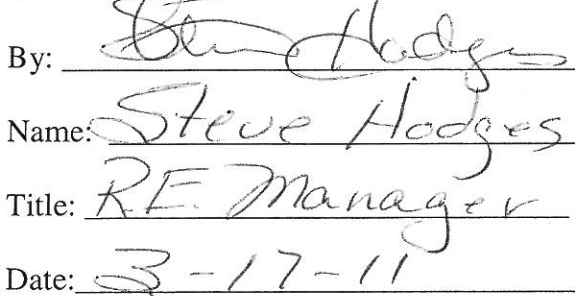 By: Steve Hodges
Name: Steve Hodges
Title: R.E. Manager
Date: 3-17-11